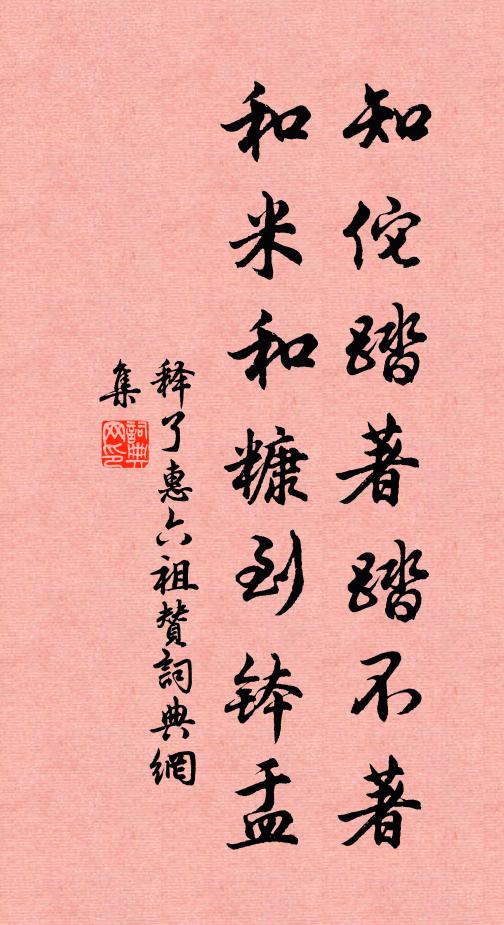 知侘踏著踏不著
和米和糠到鉢盂
释了惠六祖贊詞典網
集
詞典
网印